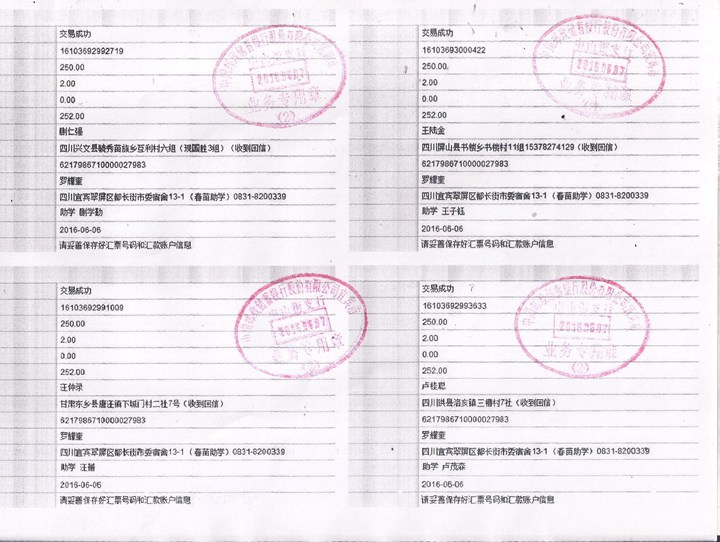 交易成功
16103692992719
250.00
2.00
0.00
252.00
四川兴文县毓秀苗族乡互利村六组(现国胜3组)(收到回信)
6217986710000027983
罗耀奎
四川宜宾翠屏区都长街市委宿舍13-1(春苗助学)0831-8200339
助学
2016-06-06
请妥善保存好汇票号码和汇款账户信息
2016.06.07
业务专用章
(2)
交易成功
16103693000422
250.00
2.00
0.00
252.00
王陆金
四川屏山县书楼乡书楼村11组15378274129(收到回信)
6217986710000027983
罗耀奎
四川宜宾翠屏区都长街市委宿舍13-1(春苗助学)0831-8200339
助学 王子钰
2016-06-06
请妥善保存好汇票号码和汇款账户信息
2016.06.07
业务专用章
交易成功
16103692991009
250.00
2.00
0.00
252.00
汪仲录
甘肃东乡县唐汪镇下城门村二社7号(收到回信)
6217986710000027983
罗耀奎
四川宜宾翠屏区都长街市委宿舍13-1(春苗助学)0831-8200339
助学 汪
2016-06-06
请妥善保存好汇票号码和汇款账户信息
2016.06.07
业务专用章
(2)
交易成功
16103692993633
250.00
2.00
0.00
252.00
卢桂聪
四川珙县洛亥镇三椿村7社(收到回信)
6217986710000027983
罗耀奎
四川宜宾翠屏区都长街市委宿舍13-1(春苗助学)0831-8200339
助学 卢茂森
2016-06-06
请妥善保存好汇票号码和汇款账户信息
2016.06.07
业务专用章
(2)